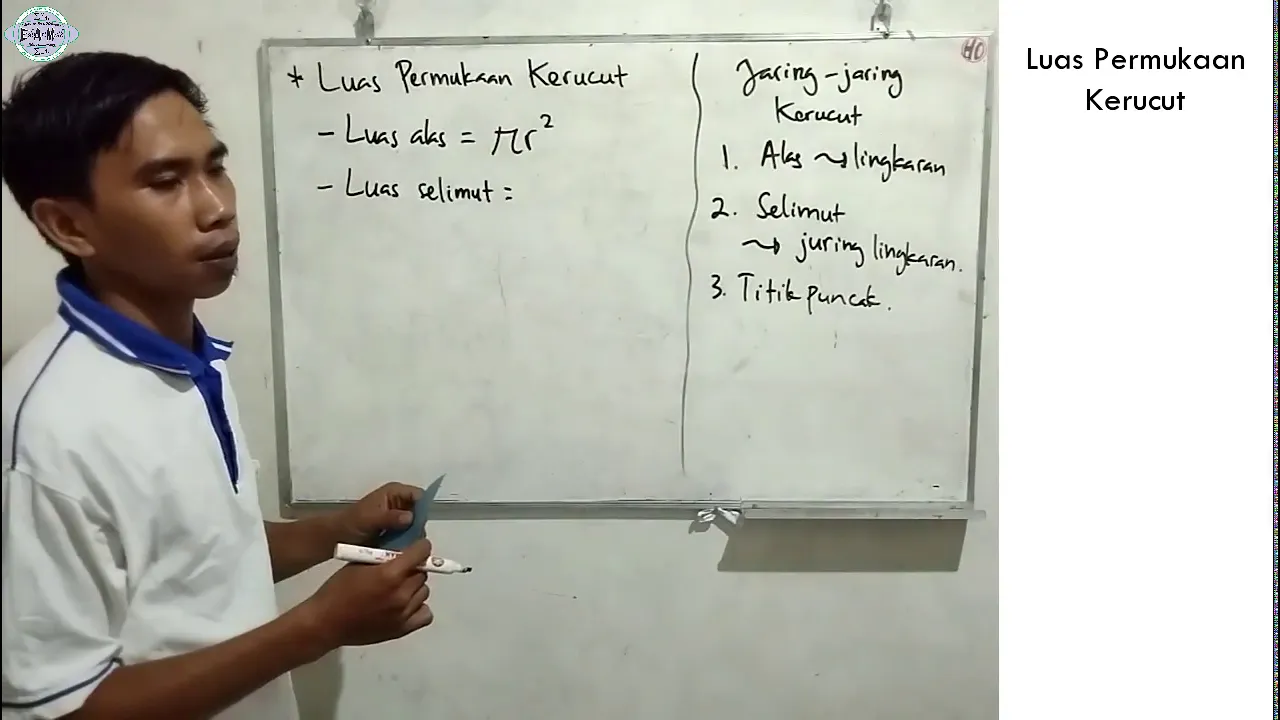 * Luas Permukaan Kerucut
- Luas alas = πr²
- Luas selimut =
Jaring-jaring
Kerucut
1. Alas ⤳ lingkaran
2. Selimut
⤳ juring lingkaran.
3. Titik puncak.
Luas Permukaan
Kerucut